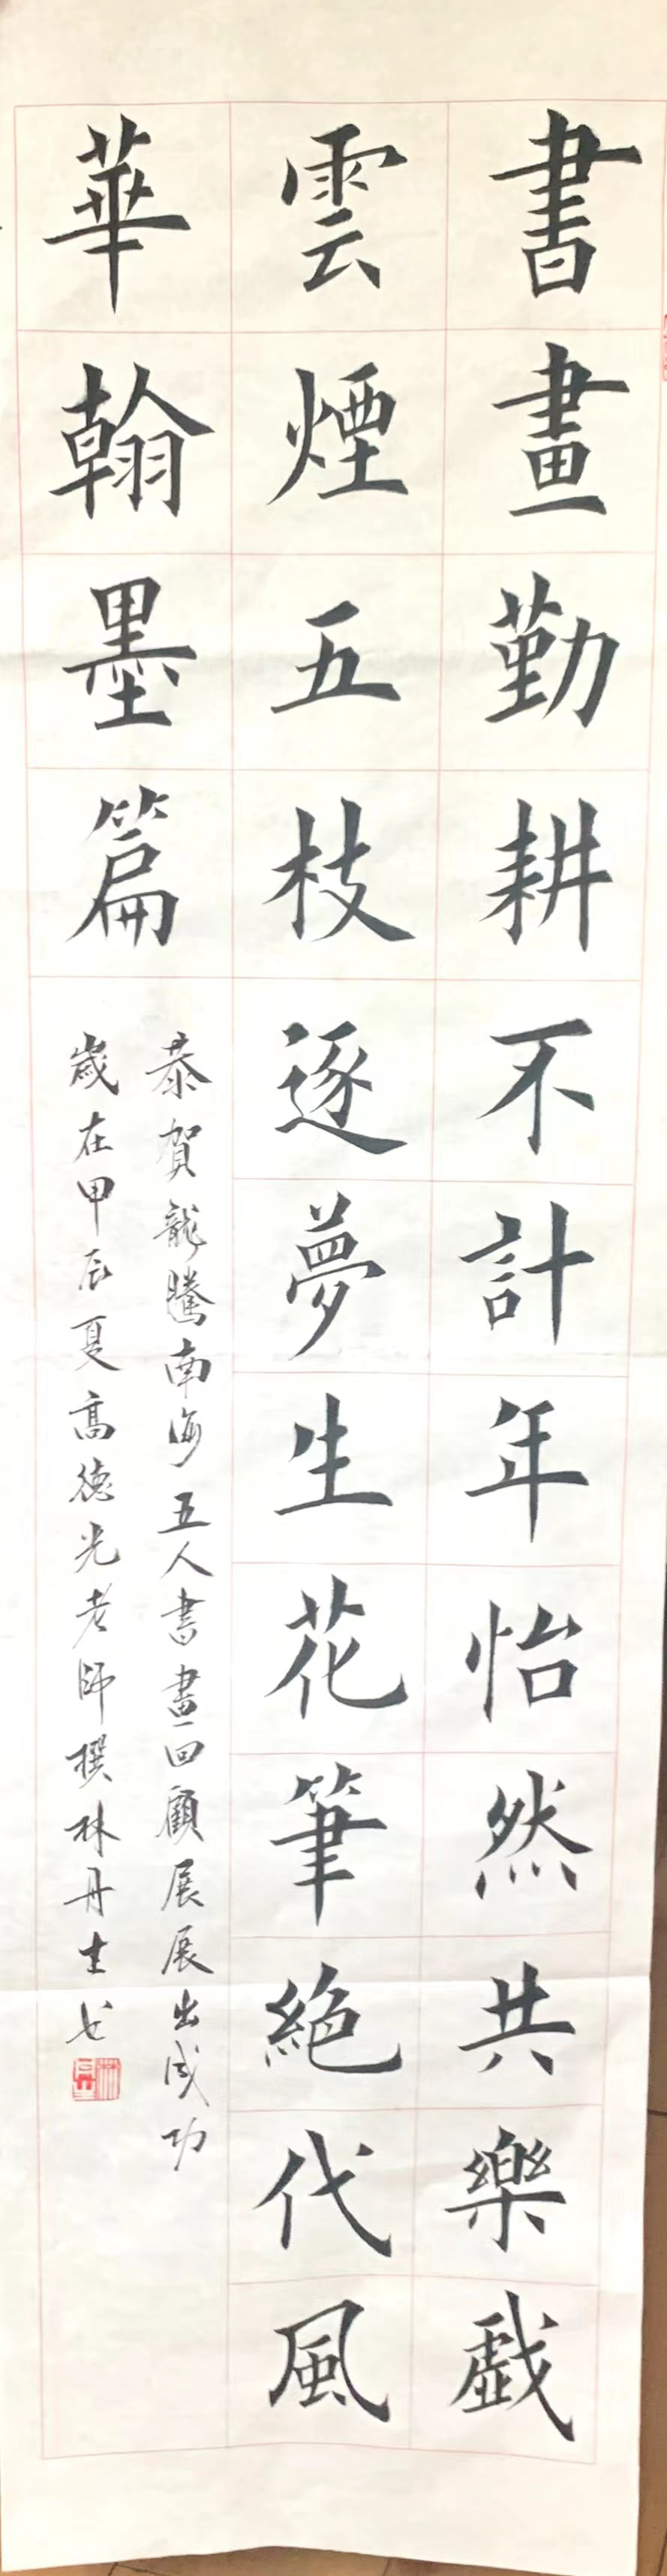 書畫勤耕不計年怡然共樂戲
雲煙五枝逐夢生花筆絕代風
華翰墨篇
恭賀龍騰南海五人書畫回顧展展出成功
歲在甲辰夏高德光老師撰林丹士书